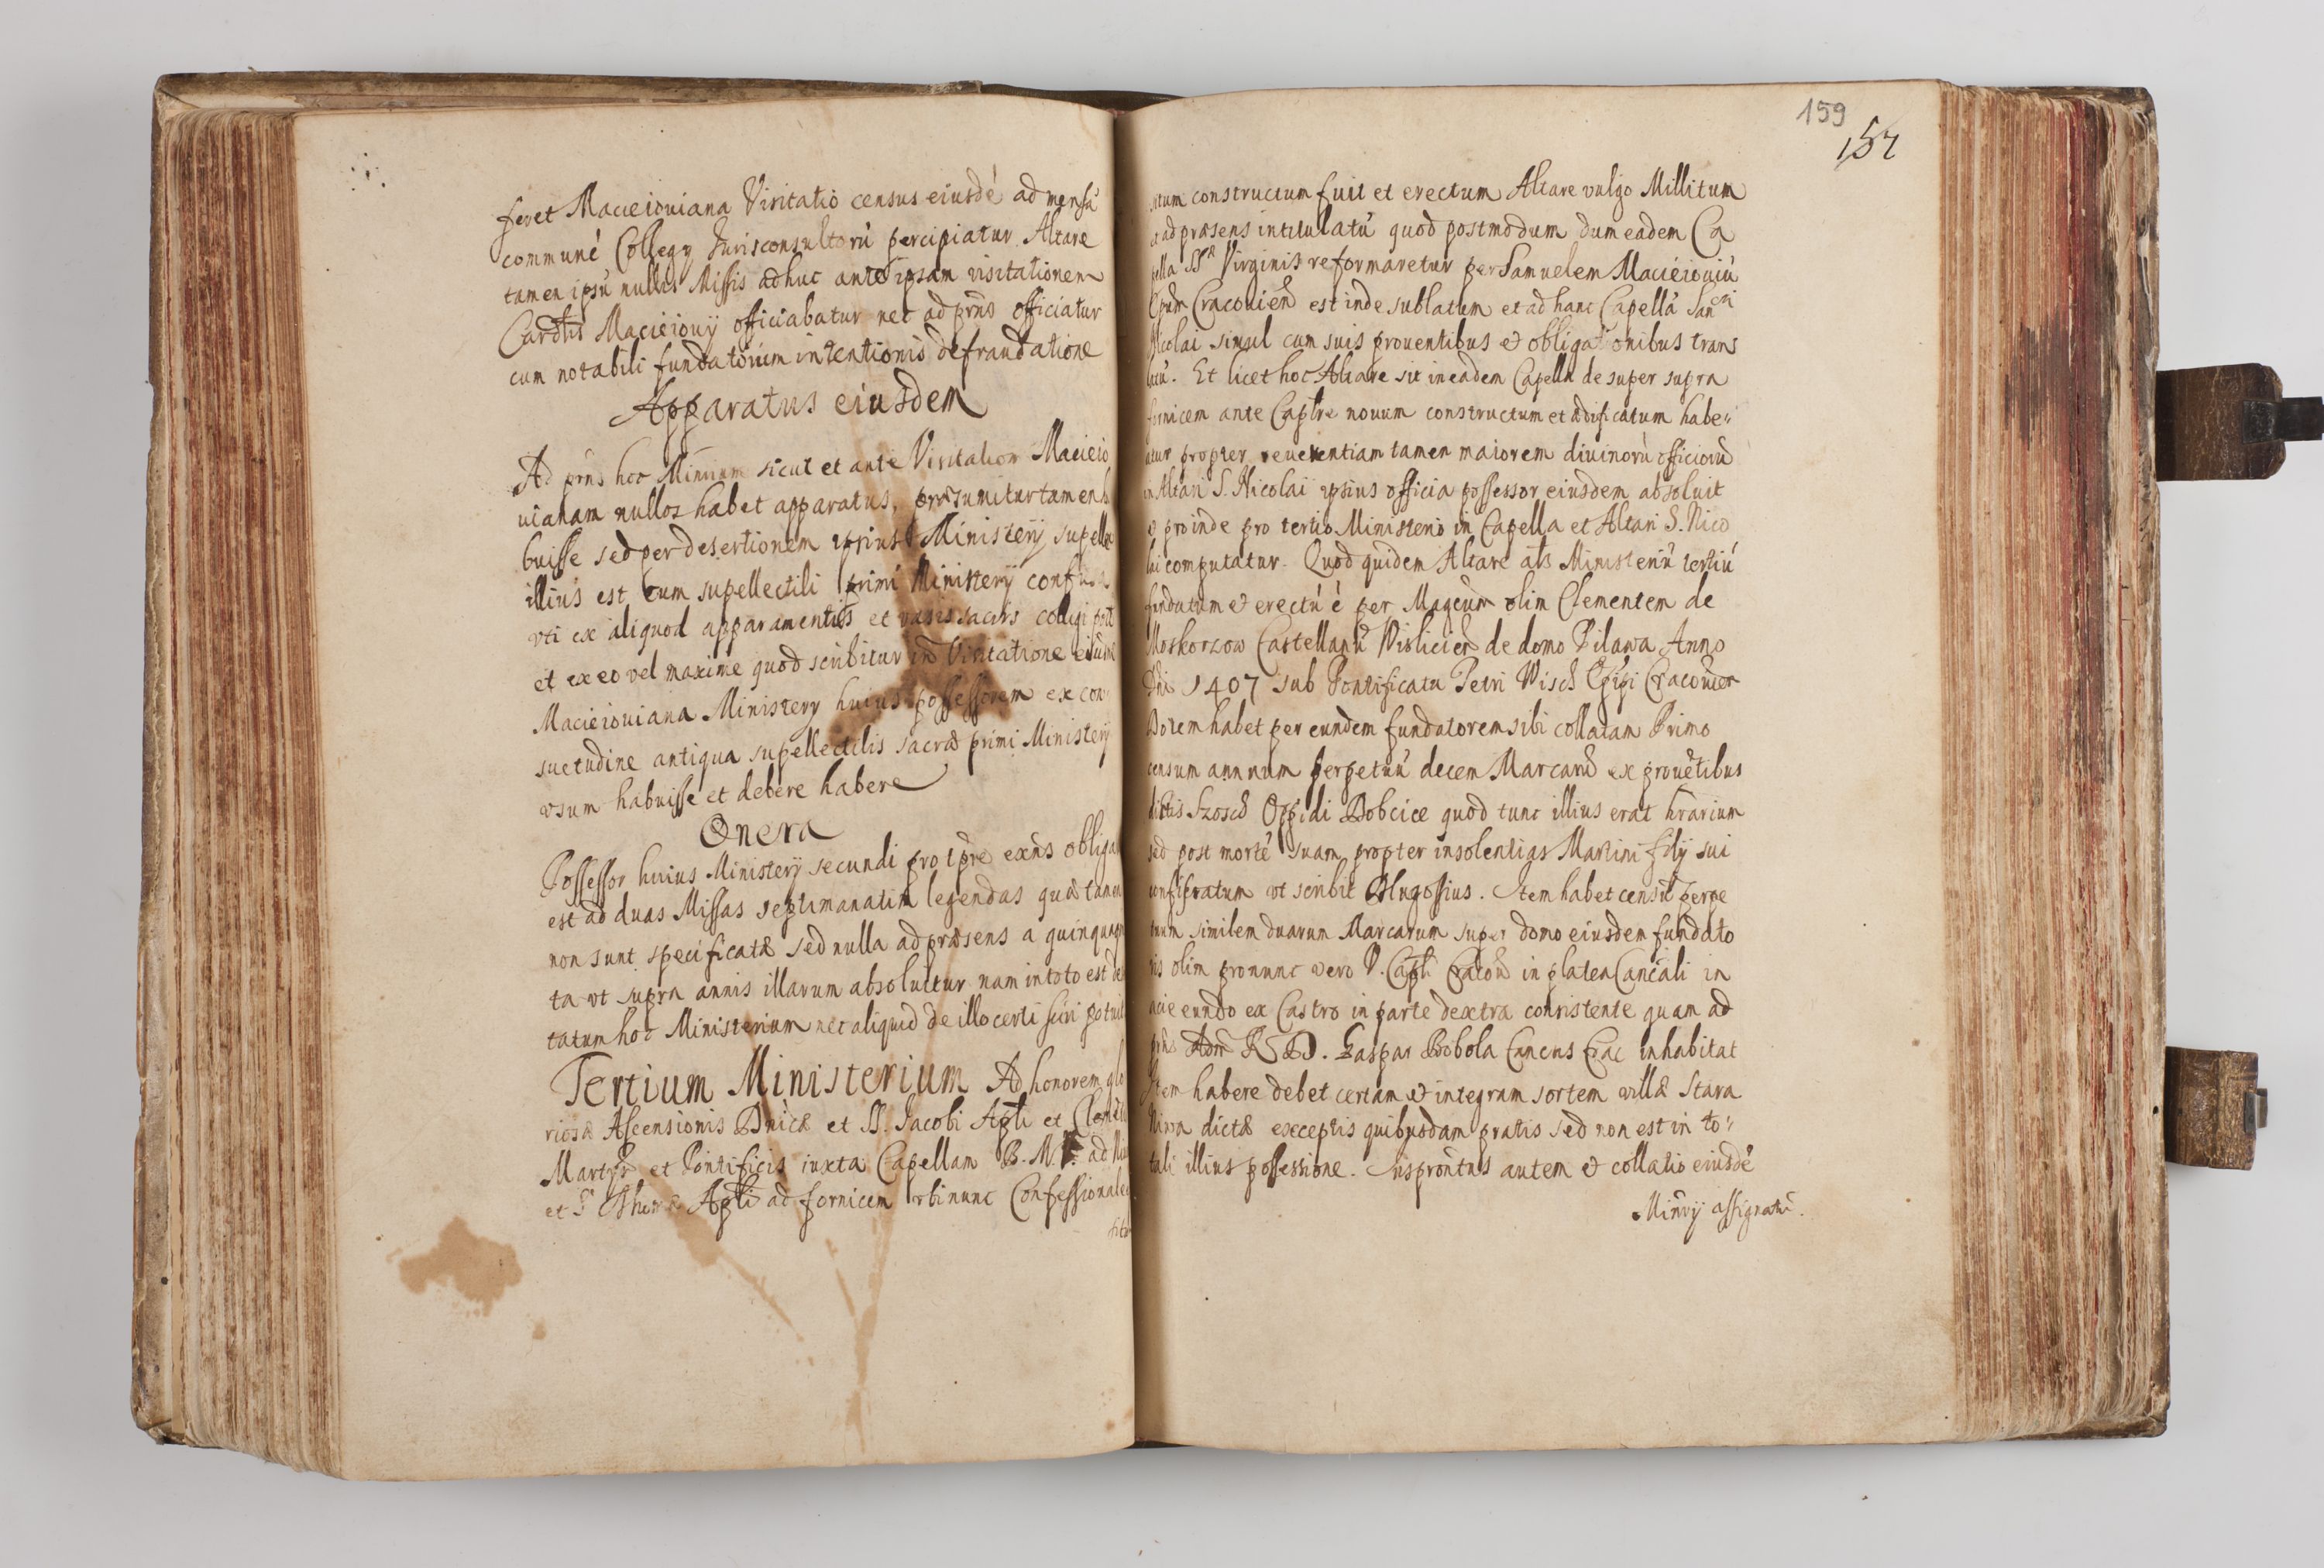 feret Macieiouiana Visitatio census eiusdé ad mensá
communé Collegy Jurisconsultorú percipiatur Altare
tamen ipsú nullis Missis adhuc ante ipsam visitationem
Cardlis Macieiouÿ officiabatur nec ad pr̃ns officiatur
cum notabili fundatorum intentionis defraudatione
Apparatus eiusdem
Ad pr̃ns hoc Minrium sicut et ante Visitation Macieio
uianam nullos habet apparatus, præsumitur tamen h
buisse sed per desertionem ipsius Ministerÿ supelle
illius est cum supellectili primi Ministerÿ
vti ex aliquod apparamentis et vasis sacris colligi
et ex eo vel maxime quod scribitur in Visitatione
Macieiouiana Ministery huius possessorem ex con
suetudine antiqua supellectilis sacræ primi Ministerÿ
vsum habuisse et debere habere
Onera
Possessor huius Ministerÿ secundi pro tpre exñs obliga
est ad duas Missas septimanatim legendas quæ tamen
non sunt specificatæ sed nulla ad præsens a quinquagin
ta vt supra annis illarum absoluitur nam in toto est de
tatum hoc Ministerium nec aliquid de illo certi sciri potuit
Tertium Ministerium Ad honorem glo
riosæ Ascensionis Dnicæ et SS. Jacobi Apli et
Martyr̃ et Pontificis iuxta Capellam B. M. V. ad
et S Apli ad fornicem vbi nunc Confessionale
159
157
constructum fuit et erectum Altare vulgo Millitum
et ad præsens intitulatú quod postmodum dum eadem Ca
pella SSæ Virginis reformaretur per Samuelem Macieiouiú
Epum Cracouień est inde sublatum et ad hanc Capellá Sancti
Nicolai simul cum suis prouentibus & obligationibus trans
latú. Et licet hoc Altare sit in eadem Capella de super supra
fornicem ante Captre nouum constructum et ædificatum habe-
atur propter reuerentiam tamen maiorem diuinorú officiorú
in Altari S. Nicolaÿ ipsius officia possessor eiusdem absoluit
& proinde pro tertio Ministerio in Capella et Altari S. Nico
lai computatur. Quod quidem Altare als Ministeriú tertiú
fundatum & erectú é per Magcum olim Clementem de
Moskorzow Castellanú Wislicień de domo Pilawa Anno
Dni 1407 sub Pontificatu Petri Wisch Epipi Cracouień
Dotem habet per eundem fundatorem sibi collatam Primo
censum annuum perpetuú decem Marcarú ex prouẽtibus
dictis Szosch Oppidi Bobcice quod tunc illius erat hrarium
sed post morté suam propter insolentias Martini filÿ sui
confiscatum vt scribit Dlugossius. Item habet censú perpe
tuum similem duarum Marcarum super domo eiusdem fundato
ris olim pronunc vero V. Capli Cracou in platea Canĉali in
acie eundo ex Castro in parte dextra consistente quam ad
pr̃ns Adm R D. Gaspar Bobola Cancus Crac inhabitat
Item habere debet certam & integram sortem villæ Stara
Niwa dictæ exceptis quibusdam pratis sed non est in to-
tali illius possessione. autem & collatio eiusdé
Minrÿ assignatú.